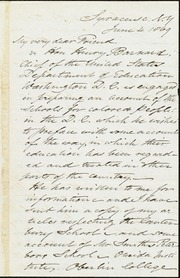 Syracuse, N.Y.
June 2 1869
My very dear Friend
Hon. Henry Barnard
Chief of the United States
Department of Education
Washington D.C. is engaged
in preparing an account of the
Schools for colored People
in the D.C. which he wishes
to preface with some account
of the way, in which their
education has been regard-
ed and treated in other
parts of the country.
He has written to me for
information and I have
sent him a copy of my ar-
ticles respecting the Canter-
bury School and some
account of Mr Smith's
boro School Oneida Insti-
tute, Oberlin College